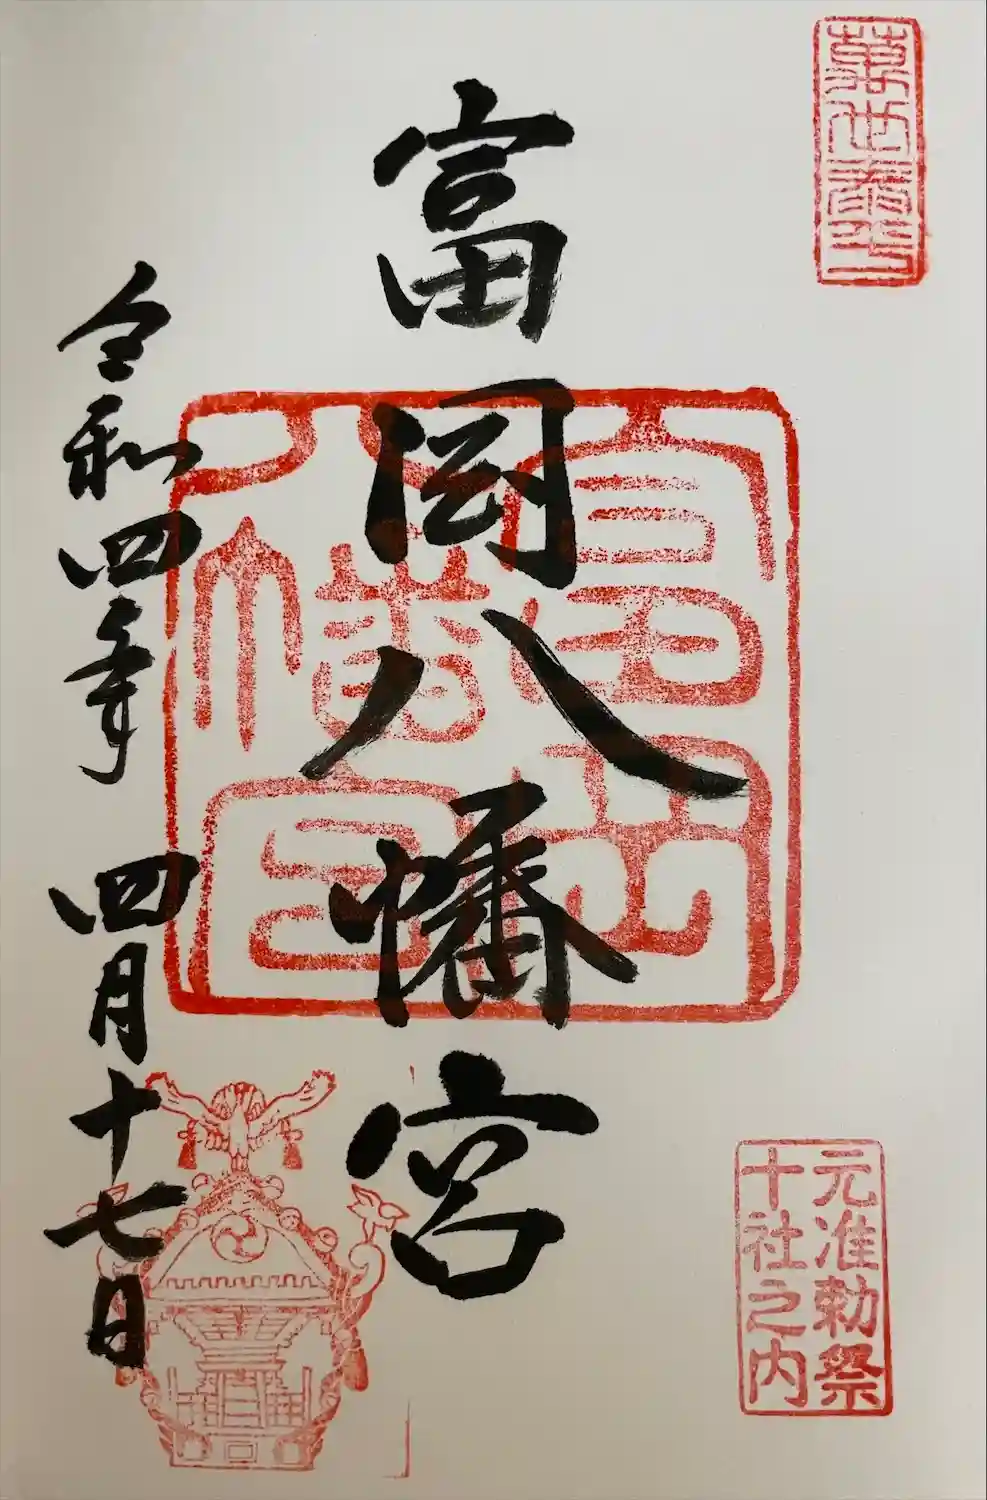 元准勅祭
十社之内
富岡八幡宮
富岡
八幡宮
令和四年 四月十七日